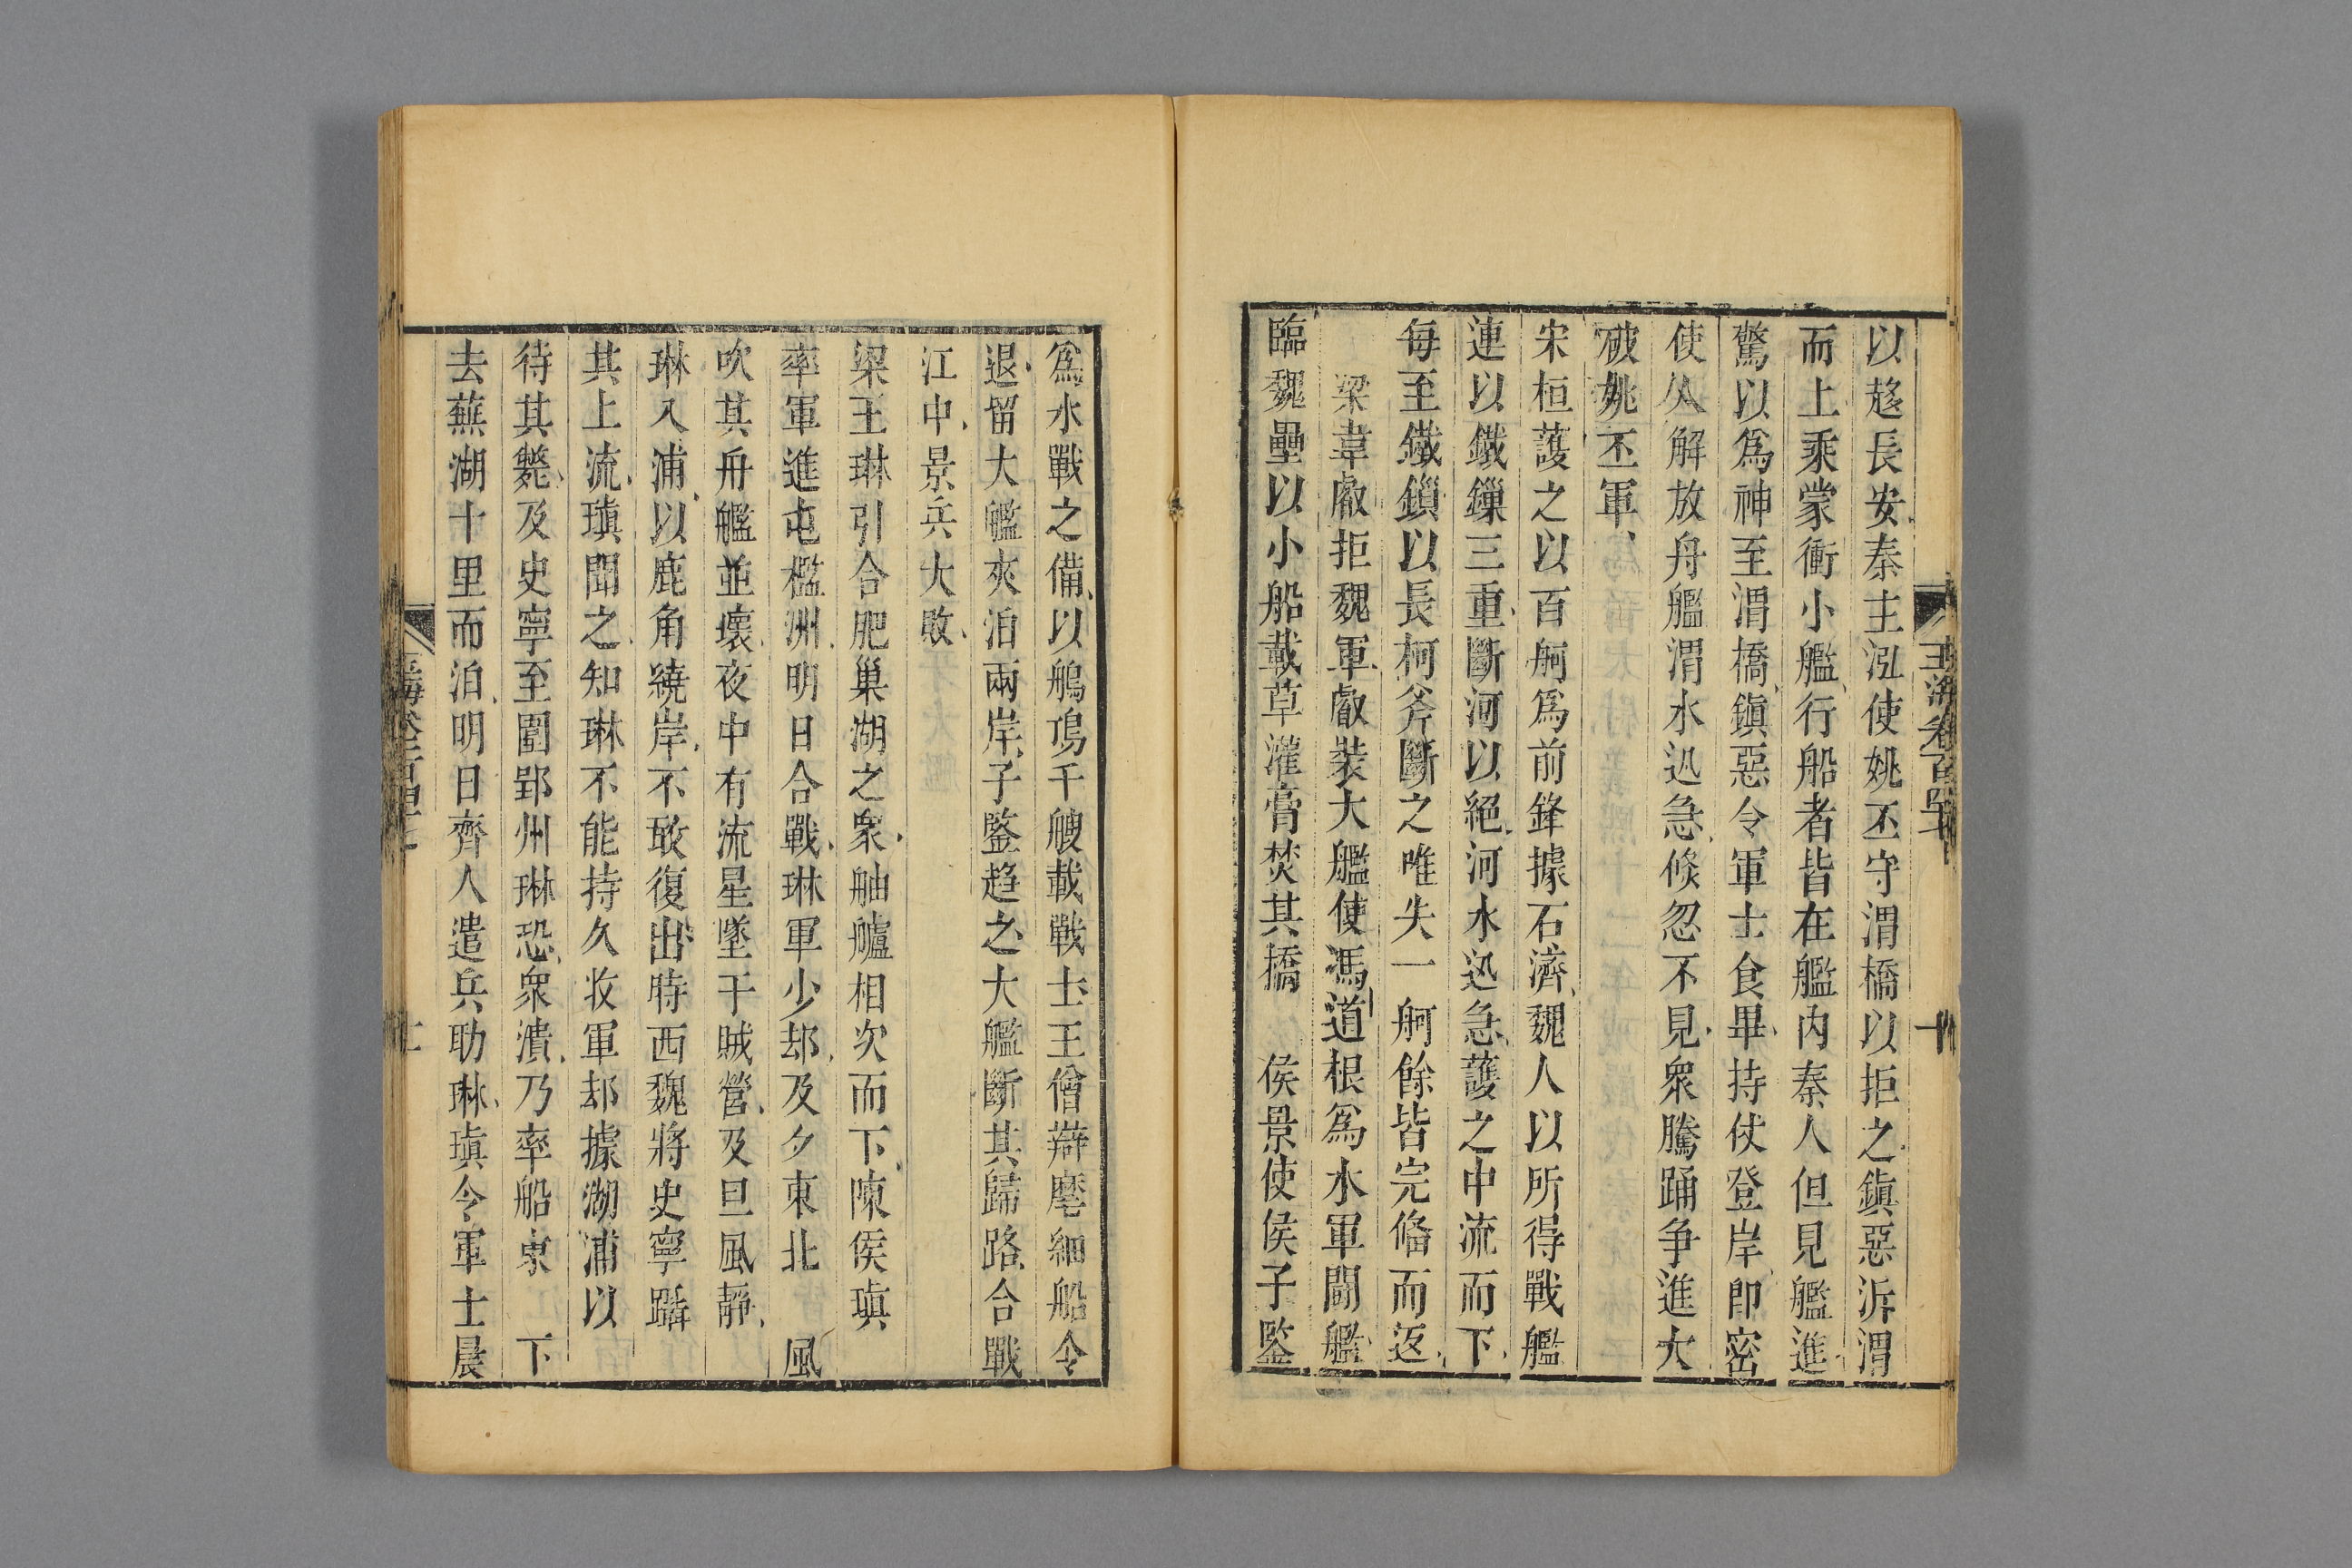 以趍長安秦主泓使姚丕守渭橋以拒之鎭惡泝渭
而上乘蒙衝小艦行船者皆在艦内秦人但見艦進
驚以爲神至渭橋鎭惡令軍士食畢持仗登岸卽密
使人解放舟艦渭水迅急倐忽不見衆騰踊争進大
破姚丕軍
宋桓護之以百舸爲前鋒據石濟魏人以所得戰艦
連以鐵鏁三重斷河以絕河水迅急護之中流而下
每至鐵鎖以長柯斧斷之唯失一舸餘皆完僃而返
梁韋叡拒魏軍叡裝大艦使馮道根爲水軍鬪艦
臨魏壘以小船載草灌膏焚其橋　侯景使侯子鑒
爲水戰之備以鵃䑠千艘載戰士王僧辯麾細船令
退留大艦夾泊兩岸子鑒趋之大艦斷其歸路合戰
江中景兵大敗
梁王琳引合肥巢湖之衆舳艫相次而下陳侯瑱
率軍進屯檻洲明日合戰琳軍少却及夕東北　風
吹其舟艦並壞夜中有流星墜于賊營及旦風靜
琳入浦以鹿角繞岸不敢復出時西魏將史寧躡
其上流瑱聞之知琳不能持久收軍却據湖浦以
待其斃及史寧至圍郢州琳恐衆潰乃率船東　下
去蕪湖十里而泊明日齊人遣兵助琳瑱令軍士晨